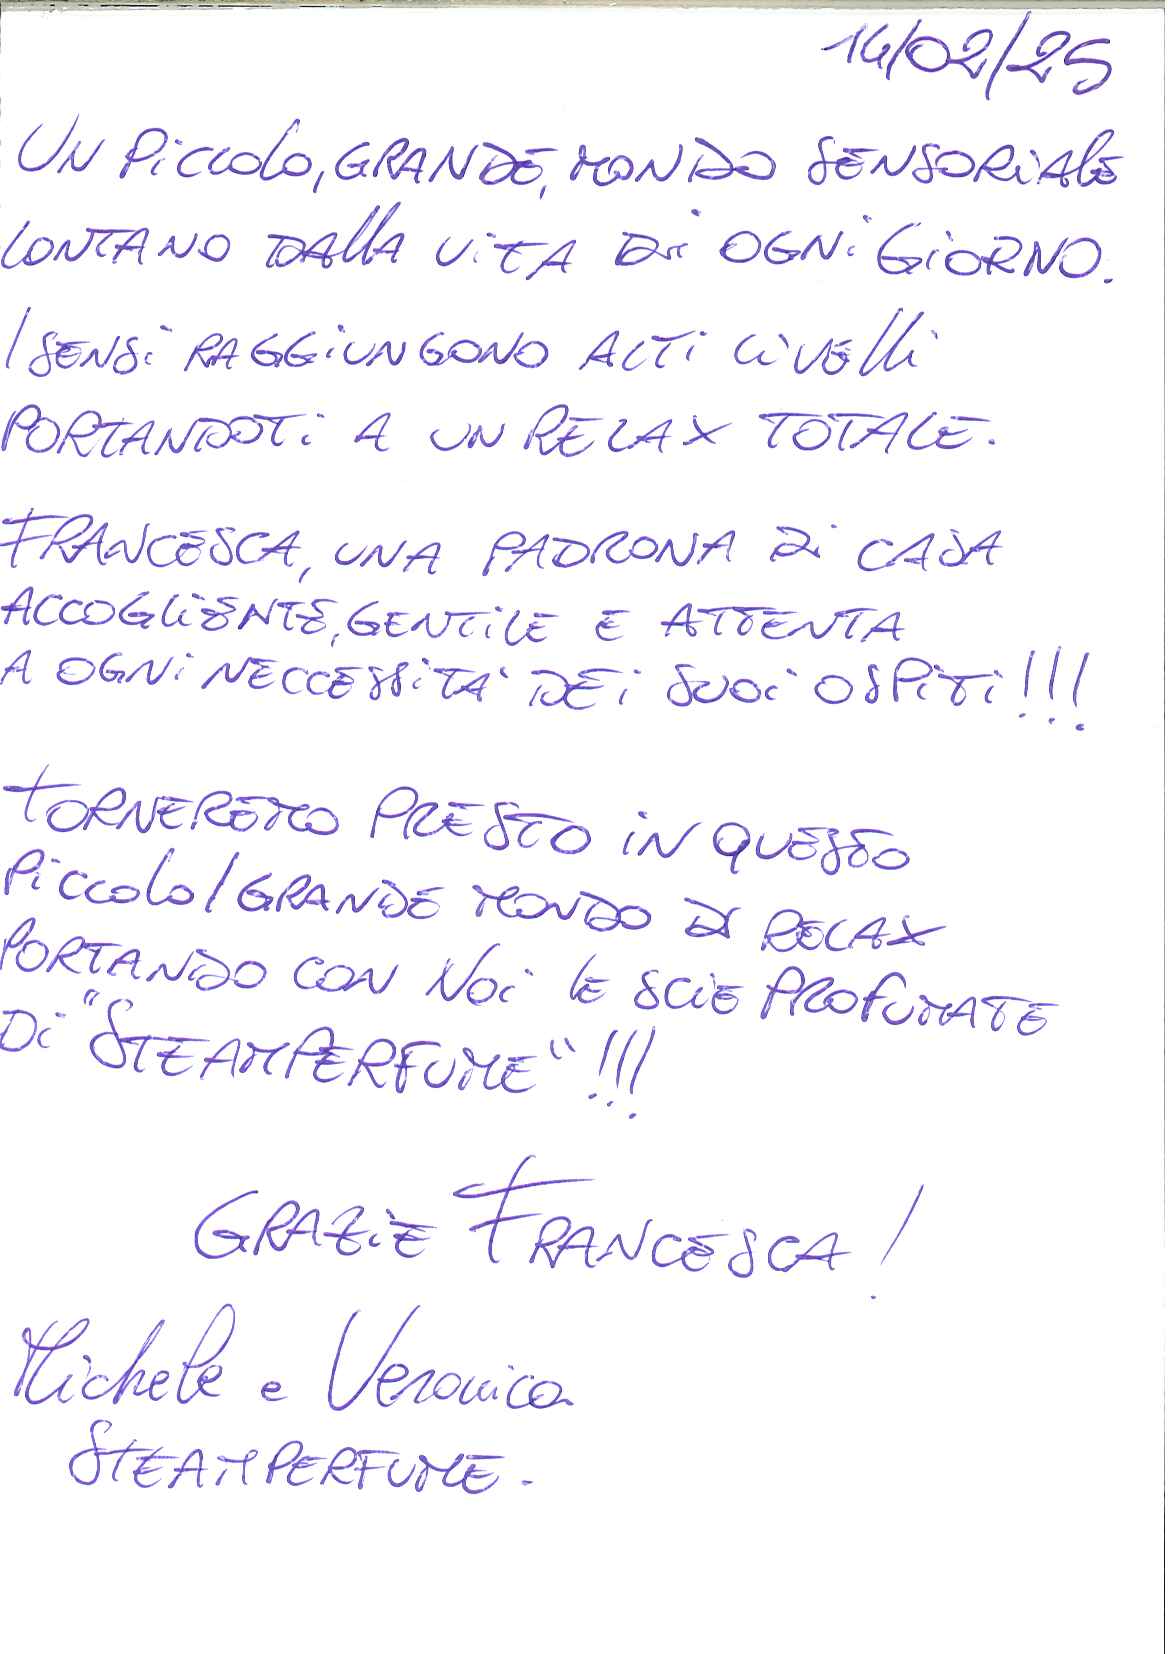 14/02/25
UN PiCCOLO, GRANDE, MONDO SENSORiAlE
LONTANO DAllA ViTA Di OGNi GiORNO.
I SENSi RAGGiUNGONO ALTi LiVElli
PORTANDOTi A UN RELAX TOTALE.
FRANCESCA, UNA PADRONA Di CASA
ACCOGLiENTE, GENTiLE E ATTENTA
A OGNi NECCESSiTA' DEi SUOi OSPiTi!!!
TORNEREMO PRESTO iN QUESTO
PiCCOLO/GRANDE MONDO Di RELAX
PORTANDO CON NOi LE SCiE PROFUMATE
Di "STEAMPERFUME"!!!
GRAZiE FRANCESCA!
Michele e Veronica
STEAMPERFUME.